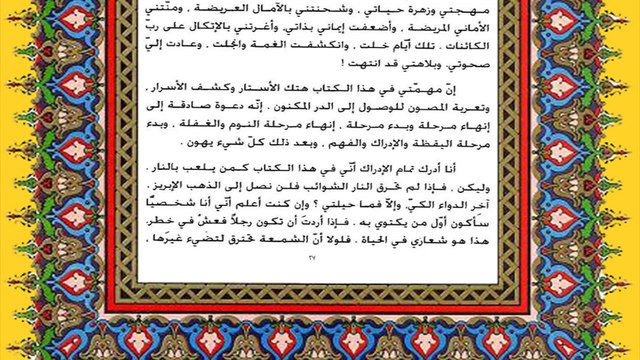 مهجتي وزهرة حياتي , وشحنتني بالآمال العريضة , ومنّتني
الأماني المريضة , وأضعفت إيماني بذاتي. وأغرتني بالإتكال على ربّ
الكائنات . تلك أيّام خلت , وانكشفت الغمة وانجلت , وعادت إليّ
صحوتي. وبلاهتي قد انتهت !
إنّ مهمّتي في هذا الكتاب هتك الأستار وكشف الأسرار ,
وتعرية المصون للوصول إلى الدر المكنون . إنّه دعوة صادقة إلى
إنهاء مرحلة وبدء مرحلة , إنهاء مرحلة النوم والغفلة , وبدء
مرحلة اليقظة والإدراك والفهم , وبعد ذلك كلّ شيء يهون .
أنا أدرك تمام الإدراك أنّي في هذا الكتاب كمن يلعب بالنار .
ولكن , فإذا لم تحرق النار الشوائب فلن نصل إلى الذهب الإبريز .
آخر الدواء الكيّ. وإلاّ فما حيلتي ؟ وإن كنت أعلم أنّي أنا شخصيّا
سأكون أوّل من يكتوي به . فإذا أردتَ أن تكون رجلاً فعشْ في خطر.
هذا هو شعاري في الحياة . فلولا أنّ الشمعة تحترق لتضيء غيرَها ,
٢٧